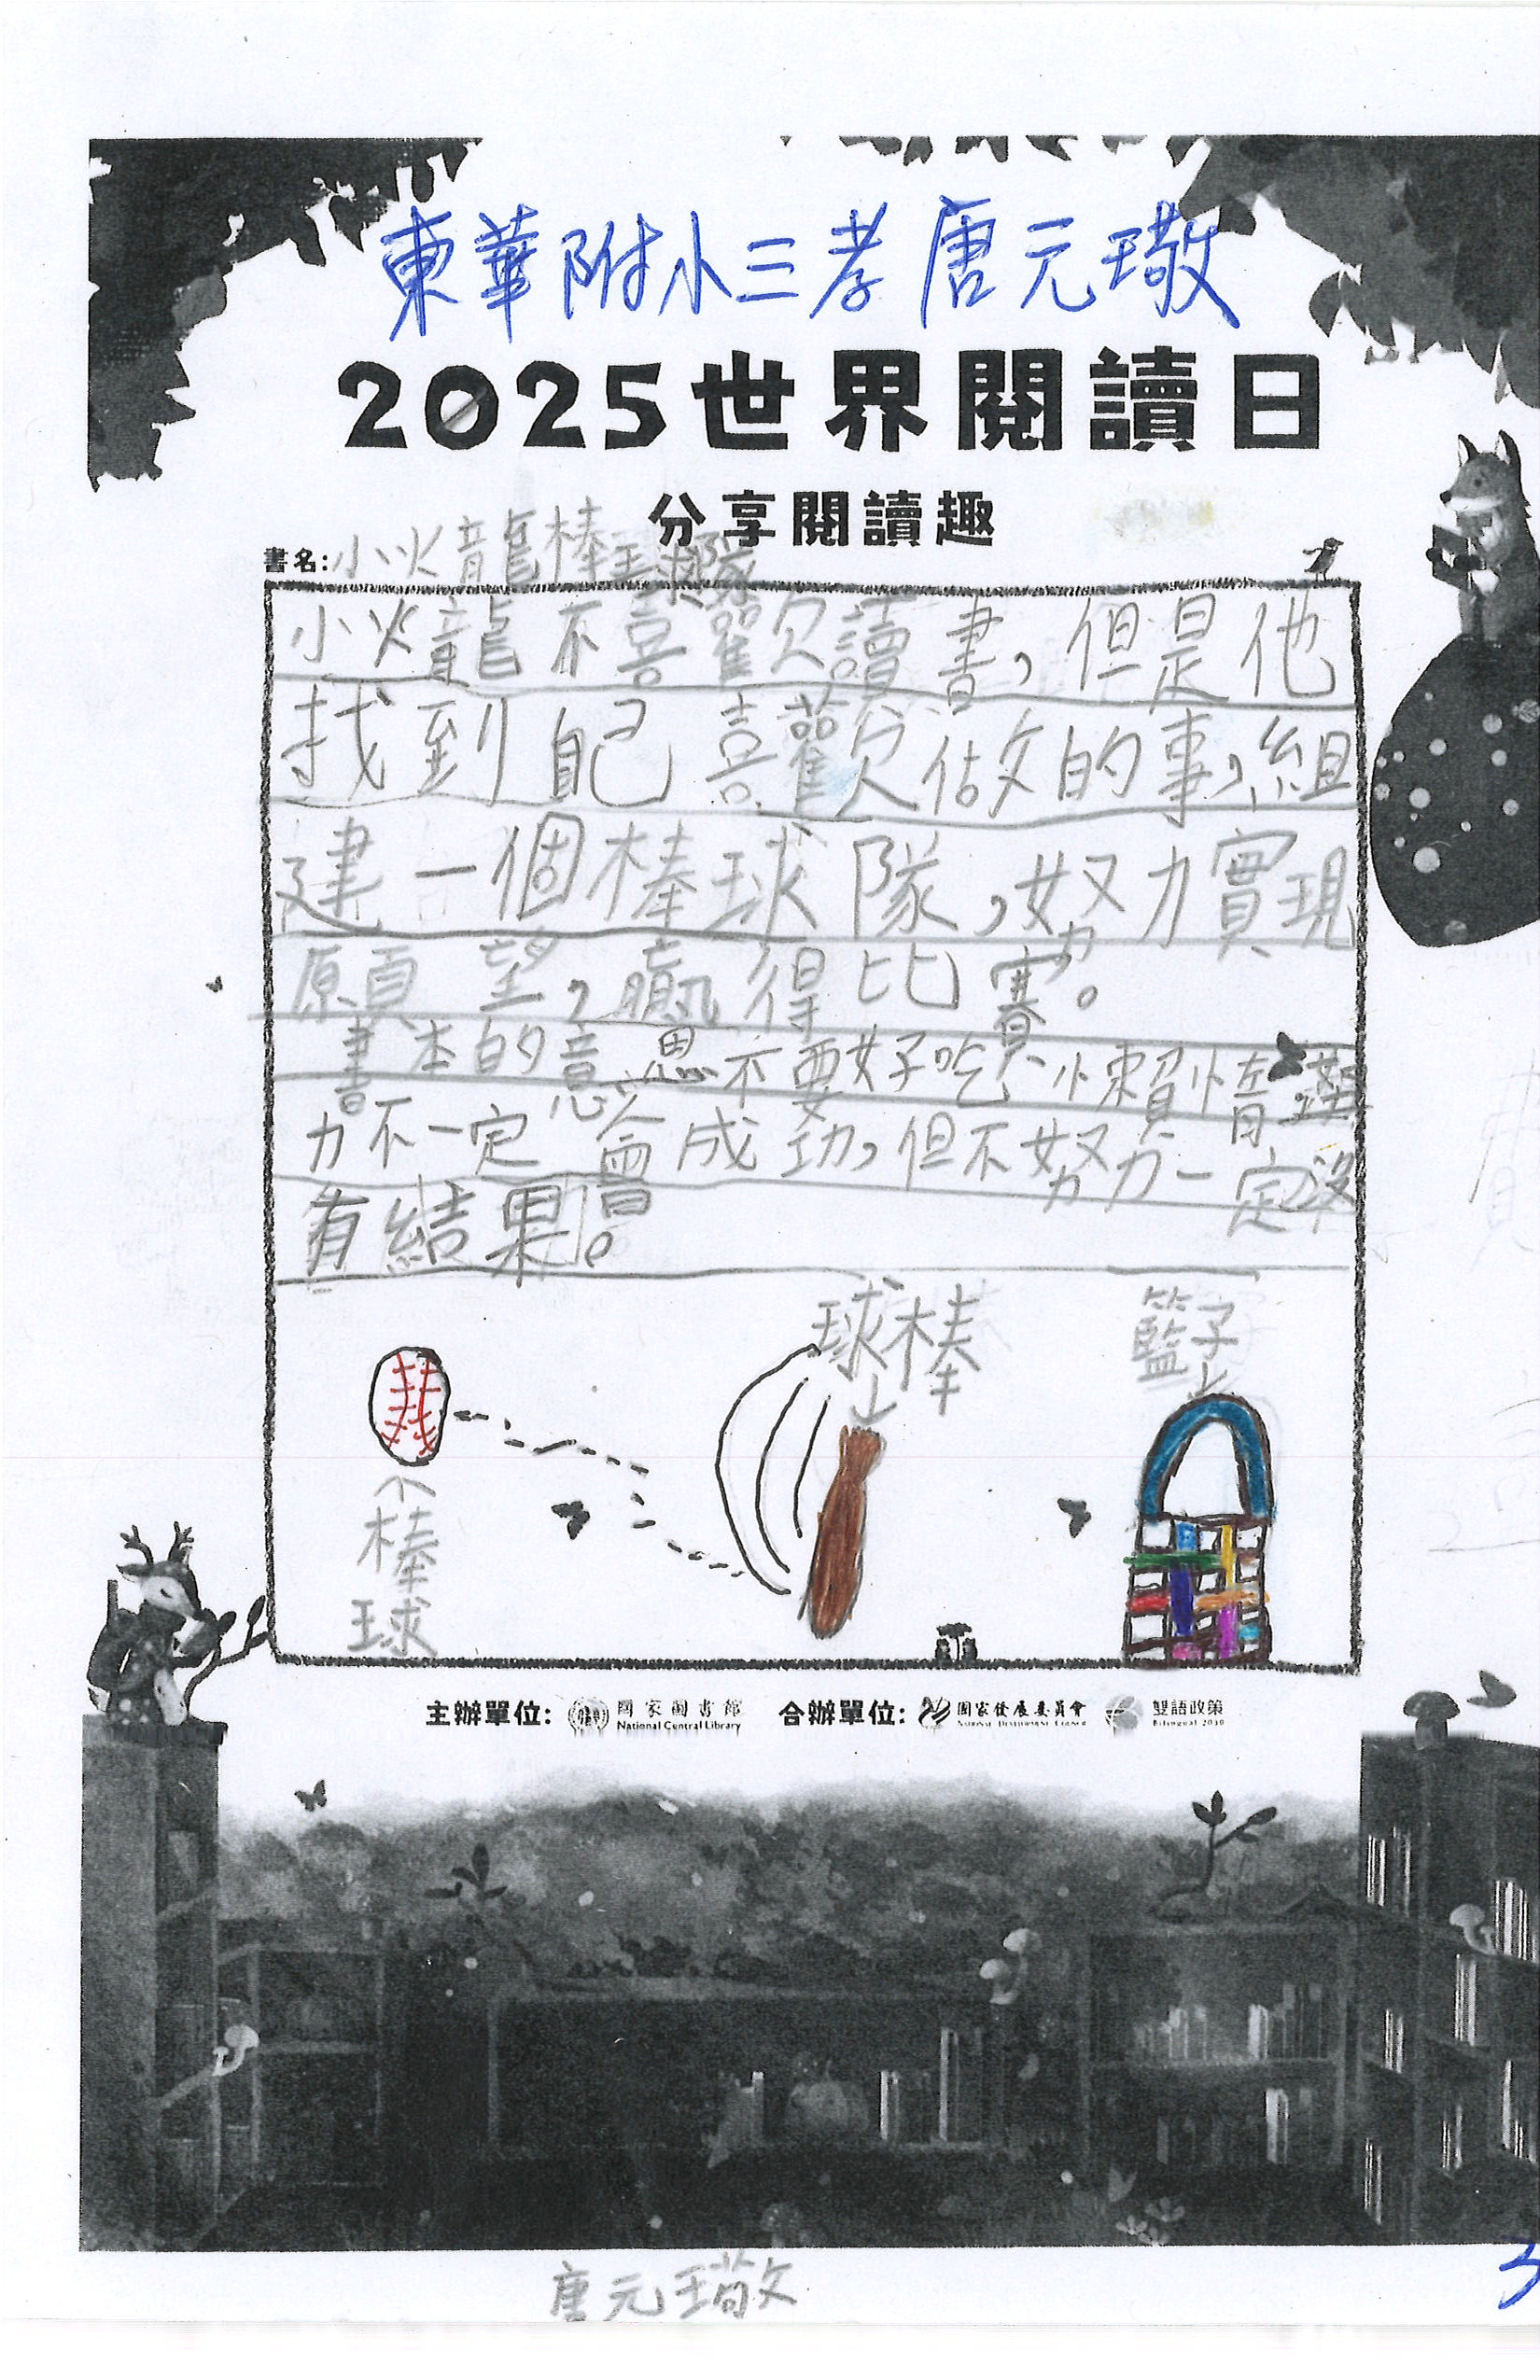 東華附小三孝唐元璥
2025世界閱讀日
分享閱讀趣
書名:小火龍棒球隊
小火龍不喜歡讀書,但是他
找到自己喜歡做的事,組
建一個棒球隊,努力實現
願望,贏得比賽。
書本的意思不要好吃懶惰,努
力不一定會成功,但不努力一定沒
有結果。
球棒
籃子
棒球
主辦單位: 國家圖書館 National Central Library 合辦單位: 國家發展委員會 National Development Council 雙語政策 Bilingual 2030
唐元璥